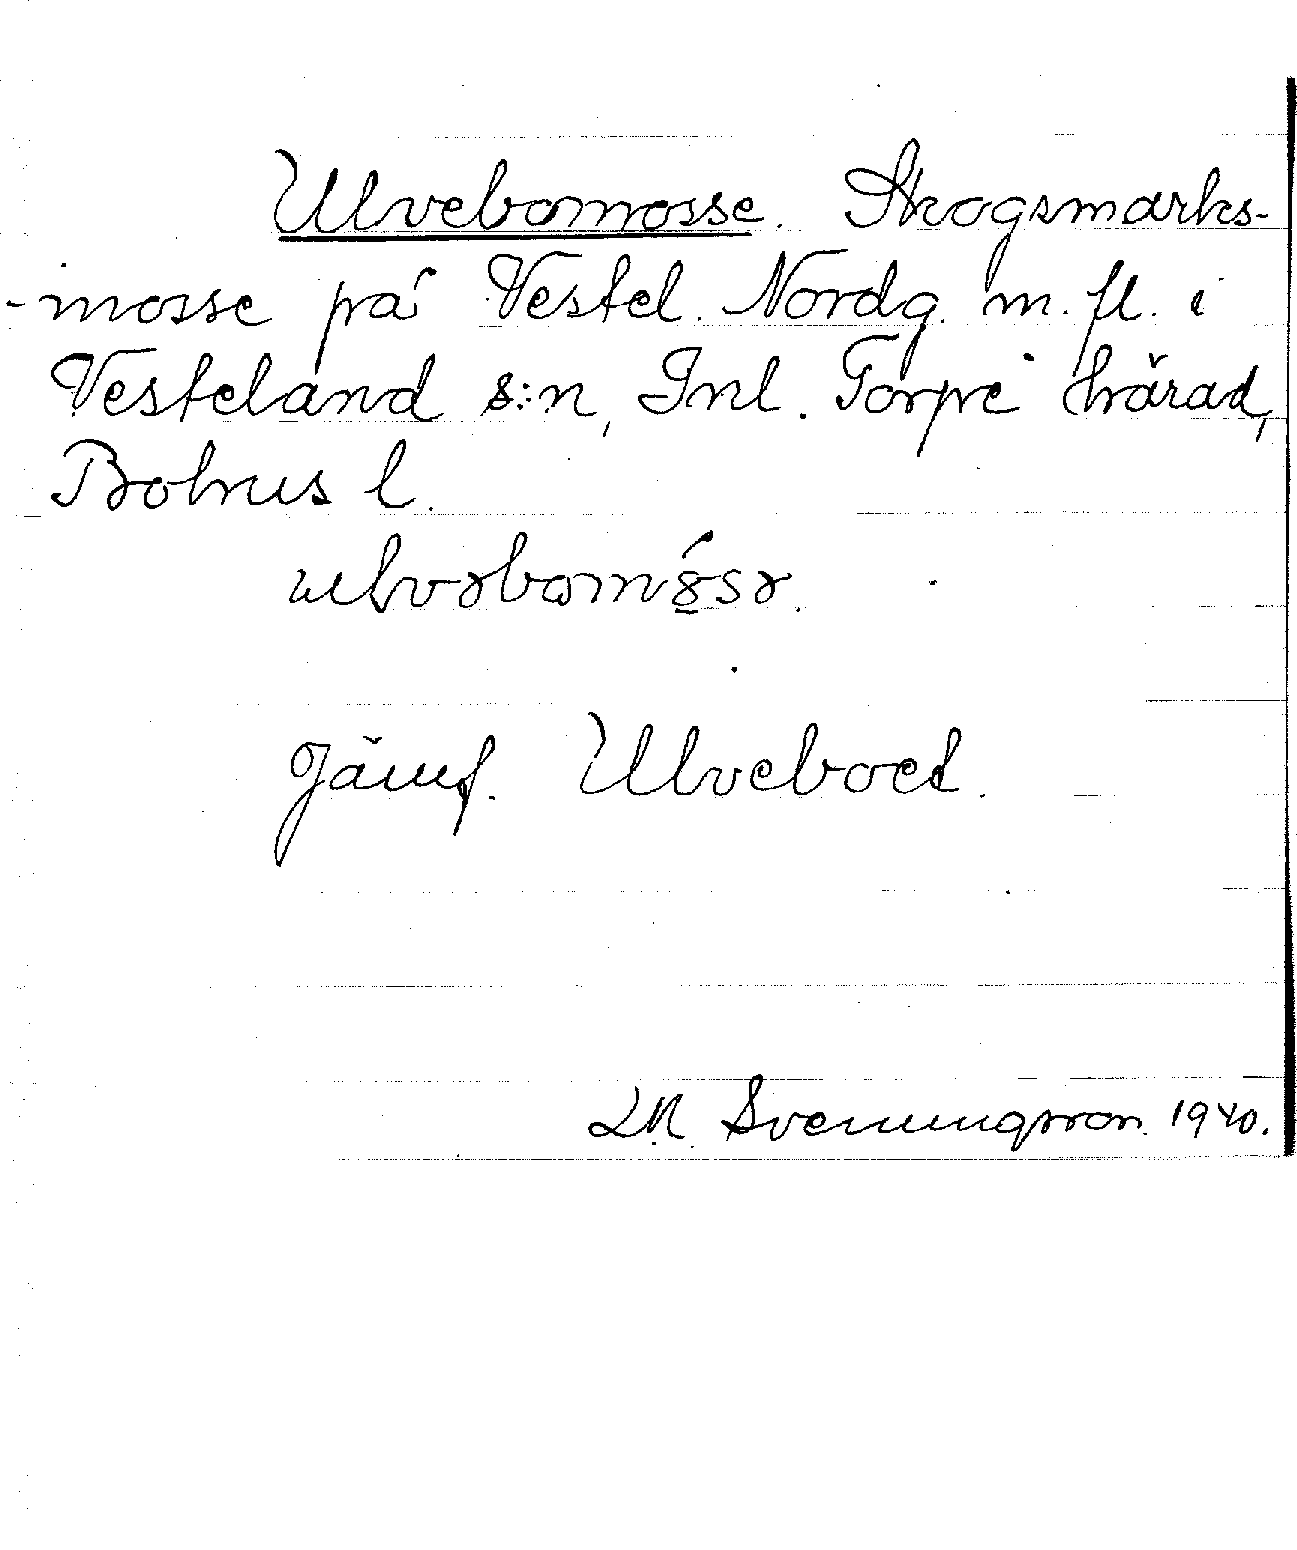 Ulvebomosse. Skogsmarks-
-mosse på Vestel. Nordg. m. fl. i
Vesteland s:n, Inl. Torpe härad,
Bohus l.
ulvəbomósə.
Jämf. Ulveboet.
Svenungsson. 1940.